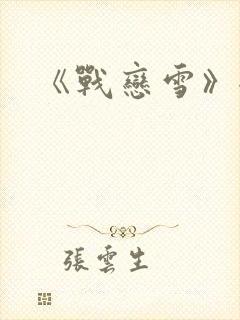 《戰戀雪》
張雲生